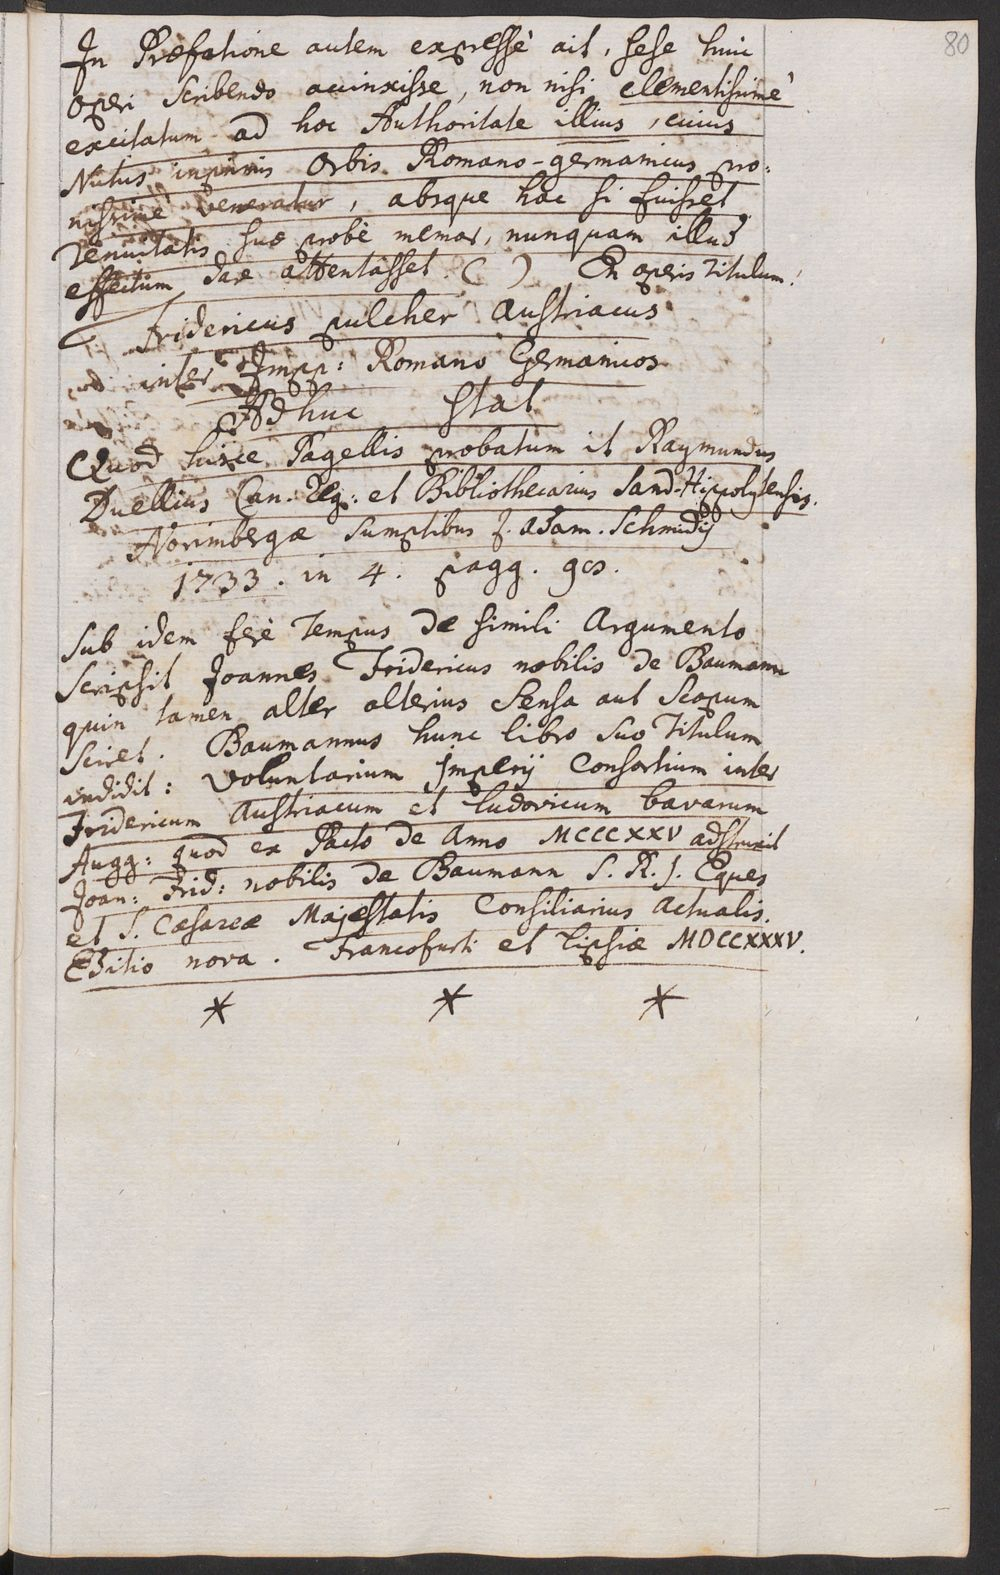 80
In Præfatione autem expressè ait, sese huic
operi scribendo accinxisse, non nisi clementissimè
excitatum ad hoc Authoritate illius, cuius
Nutus inprimis Orbis Romano-germanicus pro-
nissimè veneratur, absque hoc si fuisset
Tenuitatis suæ probè memor, nunquam illud
effectum dare attentasset. ( ) En operis Titulum!
Fridericus pulcher Austriacus
inter Impp: Romano Germanicos
Adhuc stat
Quod hisce Pagellis probatum it Raymundus
Duellius Can. Reg: et Bibliothecarius Sand-Hippolytensis.
Norimbergæ sumptibus J. Adam. Schmidij
1733. in 4. pagg.
Sub idem ferè Tempus de simili Argumento
scripsit Joannes Fridericus nobilis de Baumann
quin tamen alter alterius Sensa aut Scopum
sciret. Baumannus hunc libro suo Titulum
indidit: Voluntarium Imperij Consortium inter
Fridericum Austriacum et Ludovicum bavarum
Augg: quod ex Pacto de Anno MCCCXXV adstruxit
Joan: Frid: nobilis de Baumann S. R. J. Eques
et S. Cæsareæ Majestatis Consiliarius Actualis.
Editio nova. Francofurti et Lipsiæ MDCCXXXV.
* * *